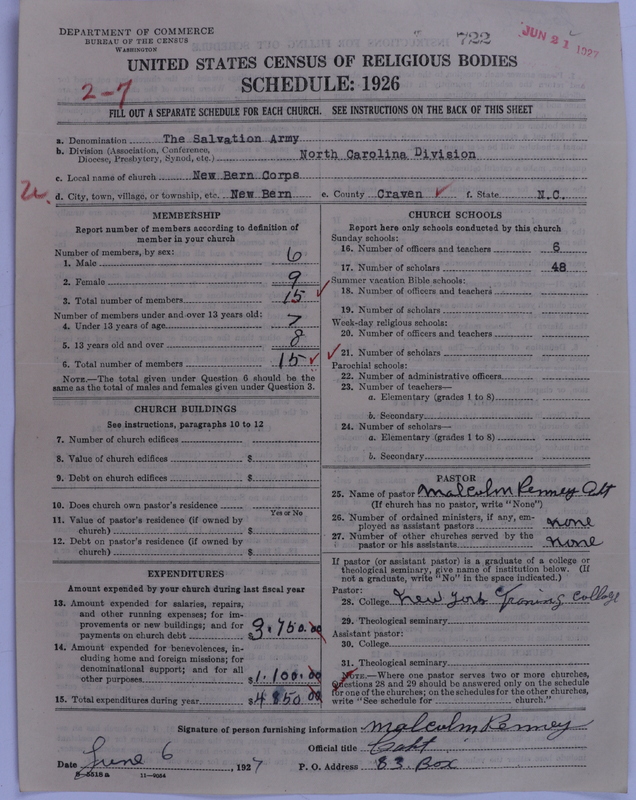 DEPARTMENT OF COMMERCE
BUREAU OF THE CENSUS
WASHINGTON
722
JUN 21 1927
UNITED STATES CENSUS OF RELIGIOUS BODIES
SCHEDULE: 1926
2-7
FILL OUT A SEPARATE SCHEDULE FOR EACH CHURCH. SEE INSTRUCTIONS ON THE BACK OF THIS SHEET
a. Denomination The Salvation Army
b. Division (Association, Conference, Diocese, Presbytery, Synod, etc.) North Carolina Division
c. Local name of church New Bern Corps
d. City, town, village, or township, etc. New Bern e. County Craven f. State N.C.
MEMBERSHIP
Report number of members according to definition of
member in your church
Number of members, by sex:
1. Male 6
2. Female 9
3. Total number of members 15
Number of members under and over 13 years old:
4. Under 13 years of age 7
5. 13 years old and over 8
6. Total number of members 15
NOTE.—The total given under Question 6 should be the
same as the total of males and females given under Question 3.
CHURCH BUILDINGS
See instructions, paragraphs 10 to 12
7. Number of church edifices
8. Value of church edifices $
9. Debt on church edifices $
10. Does church own pastor's residence
Yes or No
11. Value of pastor's residence (if owned by
church) $
12. Debt on pastor's residence (if owned by
church) $
EXPENDITURES
Amount expended by your church during last fiscal year
13. Amount expended for salaries, repairs,
and other running expenses; for im-
provements or new buildings; and for
payments on church debt $3.750.00
14. Amount expended for benevolences, in-
cluding home and foreign missions; for
denominational support; and for all
other purposes $1.100.00
15. Total expenditures during year $4850.00
CHURCH SCHOOLS
Report here only schools conducted by this church
Sunday schools:
16. Number of officers and teachers 6
17. Number of scholars 48
Summer vacation Bible schools:
18. Number of officers and teachers
19. Number of scholars
Week-day religious schools:
20. Number of officers and teachers
21. Number of scholars
Parochial schools:
22. Number of administrative officers
23. Number of teachers—
a. Elementary (grades 1 to 8)
b. Secondary
24. Number of scholars—
a. Elementary (grades 1 to 8)
b. Secondary
PASTOR
25. Name of pastor Malcolm Penney Capt
(If church has no pastor, write "None")
26. Number of ordained ministers, if any, em-
ployed as assistant pastors none
27. Number of other churches served by the
pastor or his assistants none
If pastor (or assistant pastor) is a graduate of a college or
theological seminary, give name of institution below. (If
not a graduate, write "No" in the space indicated.)
Pastor:
28. College New York Traning College
29. Theological seminary
Assistant pastor:
30. College
31. Theological seminary
NOTE.—Where one pastor serves two or more churches,
Questions 28 and 29 should be answered only on the schedule
for one of the churches; on the schedules for the other churches,
write "See schedule for church."
Signature of person furnishing information Malcolm Penney
Official title Capt
Date June 6, 1927 P. O. Address 83 Box
8—5518a 11—9064